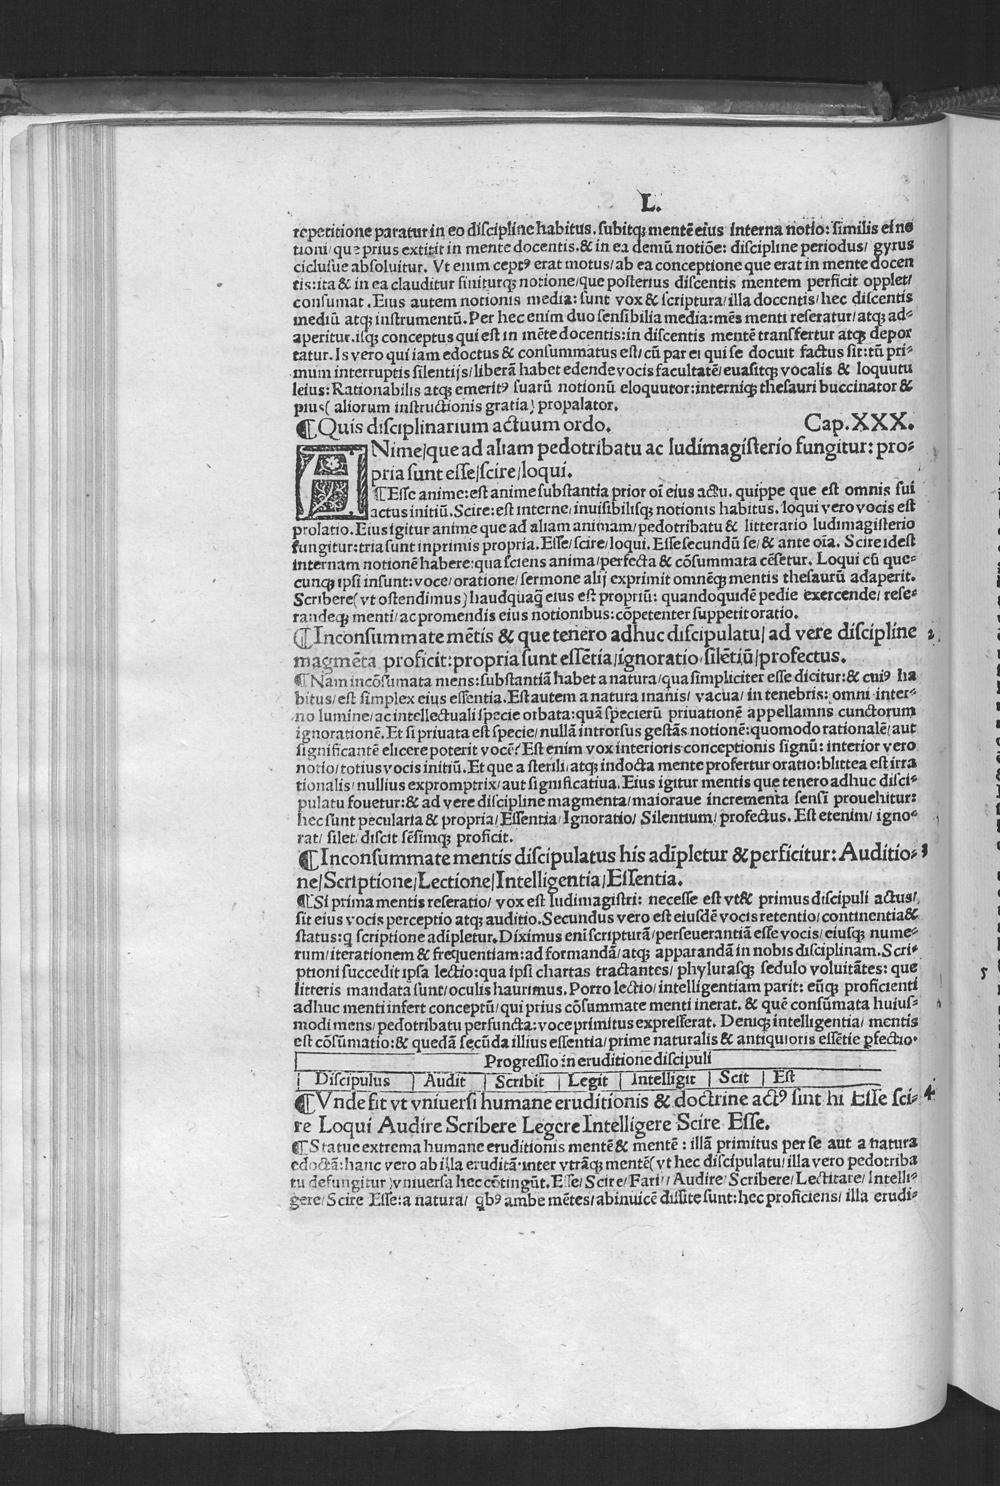 L.
repetitione paratur in eo discipline habitus. subitqꝫ mentē eius interna notio: similis ei no
tioni/ que prius extitit in mente docentis. & in ea demū notiōe: discipline periodus/ gyrus
cicluſue absoluitur. Vt enim cept⁹ erat motus/ ab ea conceptione que erat in mente docen
tis: ita & in ea clauditur finiturqꝫ notione/ que posterius discentis mentem perficit opplet/
consumat. Eius autem notionis media: sunt vox & scriptura/ illa docentis/ hec discentis
mediū atqꝫ instrumentū. Per hec enim duo sensibilia media: mēs menti reseratur/ atqꝫ ad⸗
aperitur. isqꝫ conceptus qui est in mēte docentis: in discentis mentē transfertur atqꝫ depor
tatur. Is vero qui iam edoctus & consummatus est/ cū par ei qui se docuit factus sit: tū pri⸗
mum interruptis silentijs/ liberā habet edende vocis facultatē/ euasitqꝫ vocalis & loquutu
leius: Rationabilis atqꝫ emerit⁹ suarū notionū eloquutor: interniqꝫ thesauri buccinator &
pius( aliorum instructionis gratia) propalator.
¶Quis disciplinarium actuum ordo. Cap. XXX.
ANime/ que ad aliam pedotribatu ac ludimagisterio fungitur: pro⸗
pria sunt esse/ scire/ loqui.
¶Esse anime: est anime substantia prior oī eius actu. quippe que est omnis sui
actus initiū. Scire: est interne/ inuisibilisqꝫ notionis habitus. loqui vero vocis est
prolatio. Eius igitur anime que ad aliam animam/ pedotribatu & litterario ludimagisterio
fungitur: tria sunt inprimis propria. Esse/ scire/ loqui. Esse secundū se/ & ante oīa. Scire idest
internam notionē habere: qua sciens anima/ perfecta & cōsummata cēsetur. Loqui cū que⸗
cunqꝫ ipsi insunt: voce/ oratione/ sermone alij exprimit omnēqꝫ mentis thesaurū adaperit.
Scribere( vt ostendimus) haudquaq̄ eius est propriū: quandoquidē pedie exercende/ rese⸗
randeqꝫ menti/ ac promendis eius notionibus: cōpetenter suppetit oratio.
¶Inconsummate mētis & que tenero adhuc discipulatu/ ad vere discipline 2
magmēta proficit: propria sunt essētia/ ignoratio/ silētiū/ profectus.
¶Nam incōsumata mens: substantiā habet a natura/ qua simpliciter esse dicitur: & cui⁹ ha
bitus/ est simplex eius essentia. Est autem a natura inanis/ vacua/ in tenebris: omni inter⸗
no lumine/ ac intellectuali specie orbata: quā specierū priuationē appellamus cunctorum
ignorationē. Et si priuata est specie/ nullā introrsus gestās notionē: quomodo rationalē/ aut
significantē elicere poterit vocē? Est enim vox interioris conceptionis signū: interior vero
notio/ totius vocis initiū. Et que a sterili/ atqꝫ indocta mente profertur oratio: blittea est irra
tionalis/ nullius expromptrix/ aut significatiua. Eius igitur mentis que tenero adhuc disci⸗
pulatu fouetur: & ad vere discipline magmenta/ maioraue incrementa sensī prouehitur:
hec sunt pecularia & propria/ Essentia/ Ignoratio/ Silentium/ profectus. Est etenim/ igno⸗
rat/ silet/ discit sēsimqꝫ proficit.
¶Inconsummate mentis discipulatus his adīpletur & perficitur: Auditio⸗ 3
ne/ Scriptione/ Lectione/ Intelligentia/ Essentia.
¶Si prima mentis reseratio/ vox est ludimagistri: necesse est vt & primus discipuli actus/
sit eius vocis perceptio atqꝫ auditio. Secundus vero est eiusdē vocis retentio/ continentia &
status: q̄ scriptione adīpletur. Diximus eni scripturā/ perseuerantiā esse vocis/ eiusqꝫ nume⸗
rum/ iterationem & frequentiam: ad formandā/ atqꝫ apparandā in nobis disciplinam. Scri⸗
ptioni succedit ipsa lectio: qua ipsi chartas tractantes/ phylurasqꝫ sedulo voluitātes: que
litteris mandata sunt/ oculis haurimus. Porro lectio/ intelligentiam parit: eūqꝫ proficienti
adhuc menti infert conceptū/ qui prius cōsummate menti inerat. & quē consūmata huius⸗
modi mens/ pedotribatu perfuncta: voce primitus expresserat. Deniqꝫ intelligentia/ mentis
est cōsūmatio: & quedā secūda illius essentia/ prime naturalis & antiquioris essētie ꝑfectio.
Progressio in eruditione discipuli
Discipulus | Audit | Scribit | Legit | Intelligit | Scit | Est
¶Vnde fit vt vniuersi humane eruditionis & doctrine act⁹ sint hi Esse sci⸗ 4
re Loqui Audire Scribere Legere Intelligere Scire Esse.
¶Statue extrema humane eruditionis mentē & mentē: illā primitus per se aut a natura
edoctā: hanc vero ab illa eruditā. inter vtrāqꝫ mentē( vt hec discipulatu/ illa vero pedotriba
tu defungitur) vniuersa hec cōtingūt. Esse/ Scire/ Fari/ Audire/ Scribere/ Lectitare/ Intelli⸗
gere/ Scire Esse: a natura/ qb⁹ ambe mētes/ abinuicē dissite sunt: hec proficiens/ illa erudi⸗